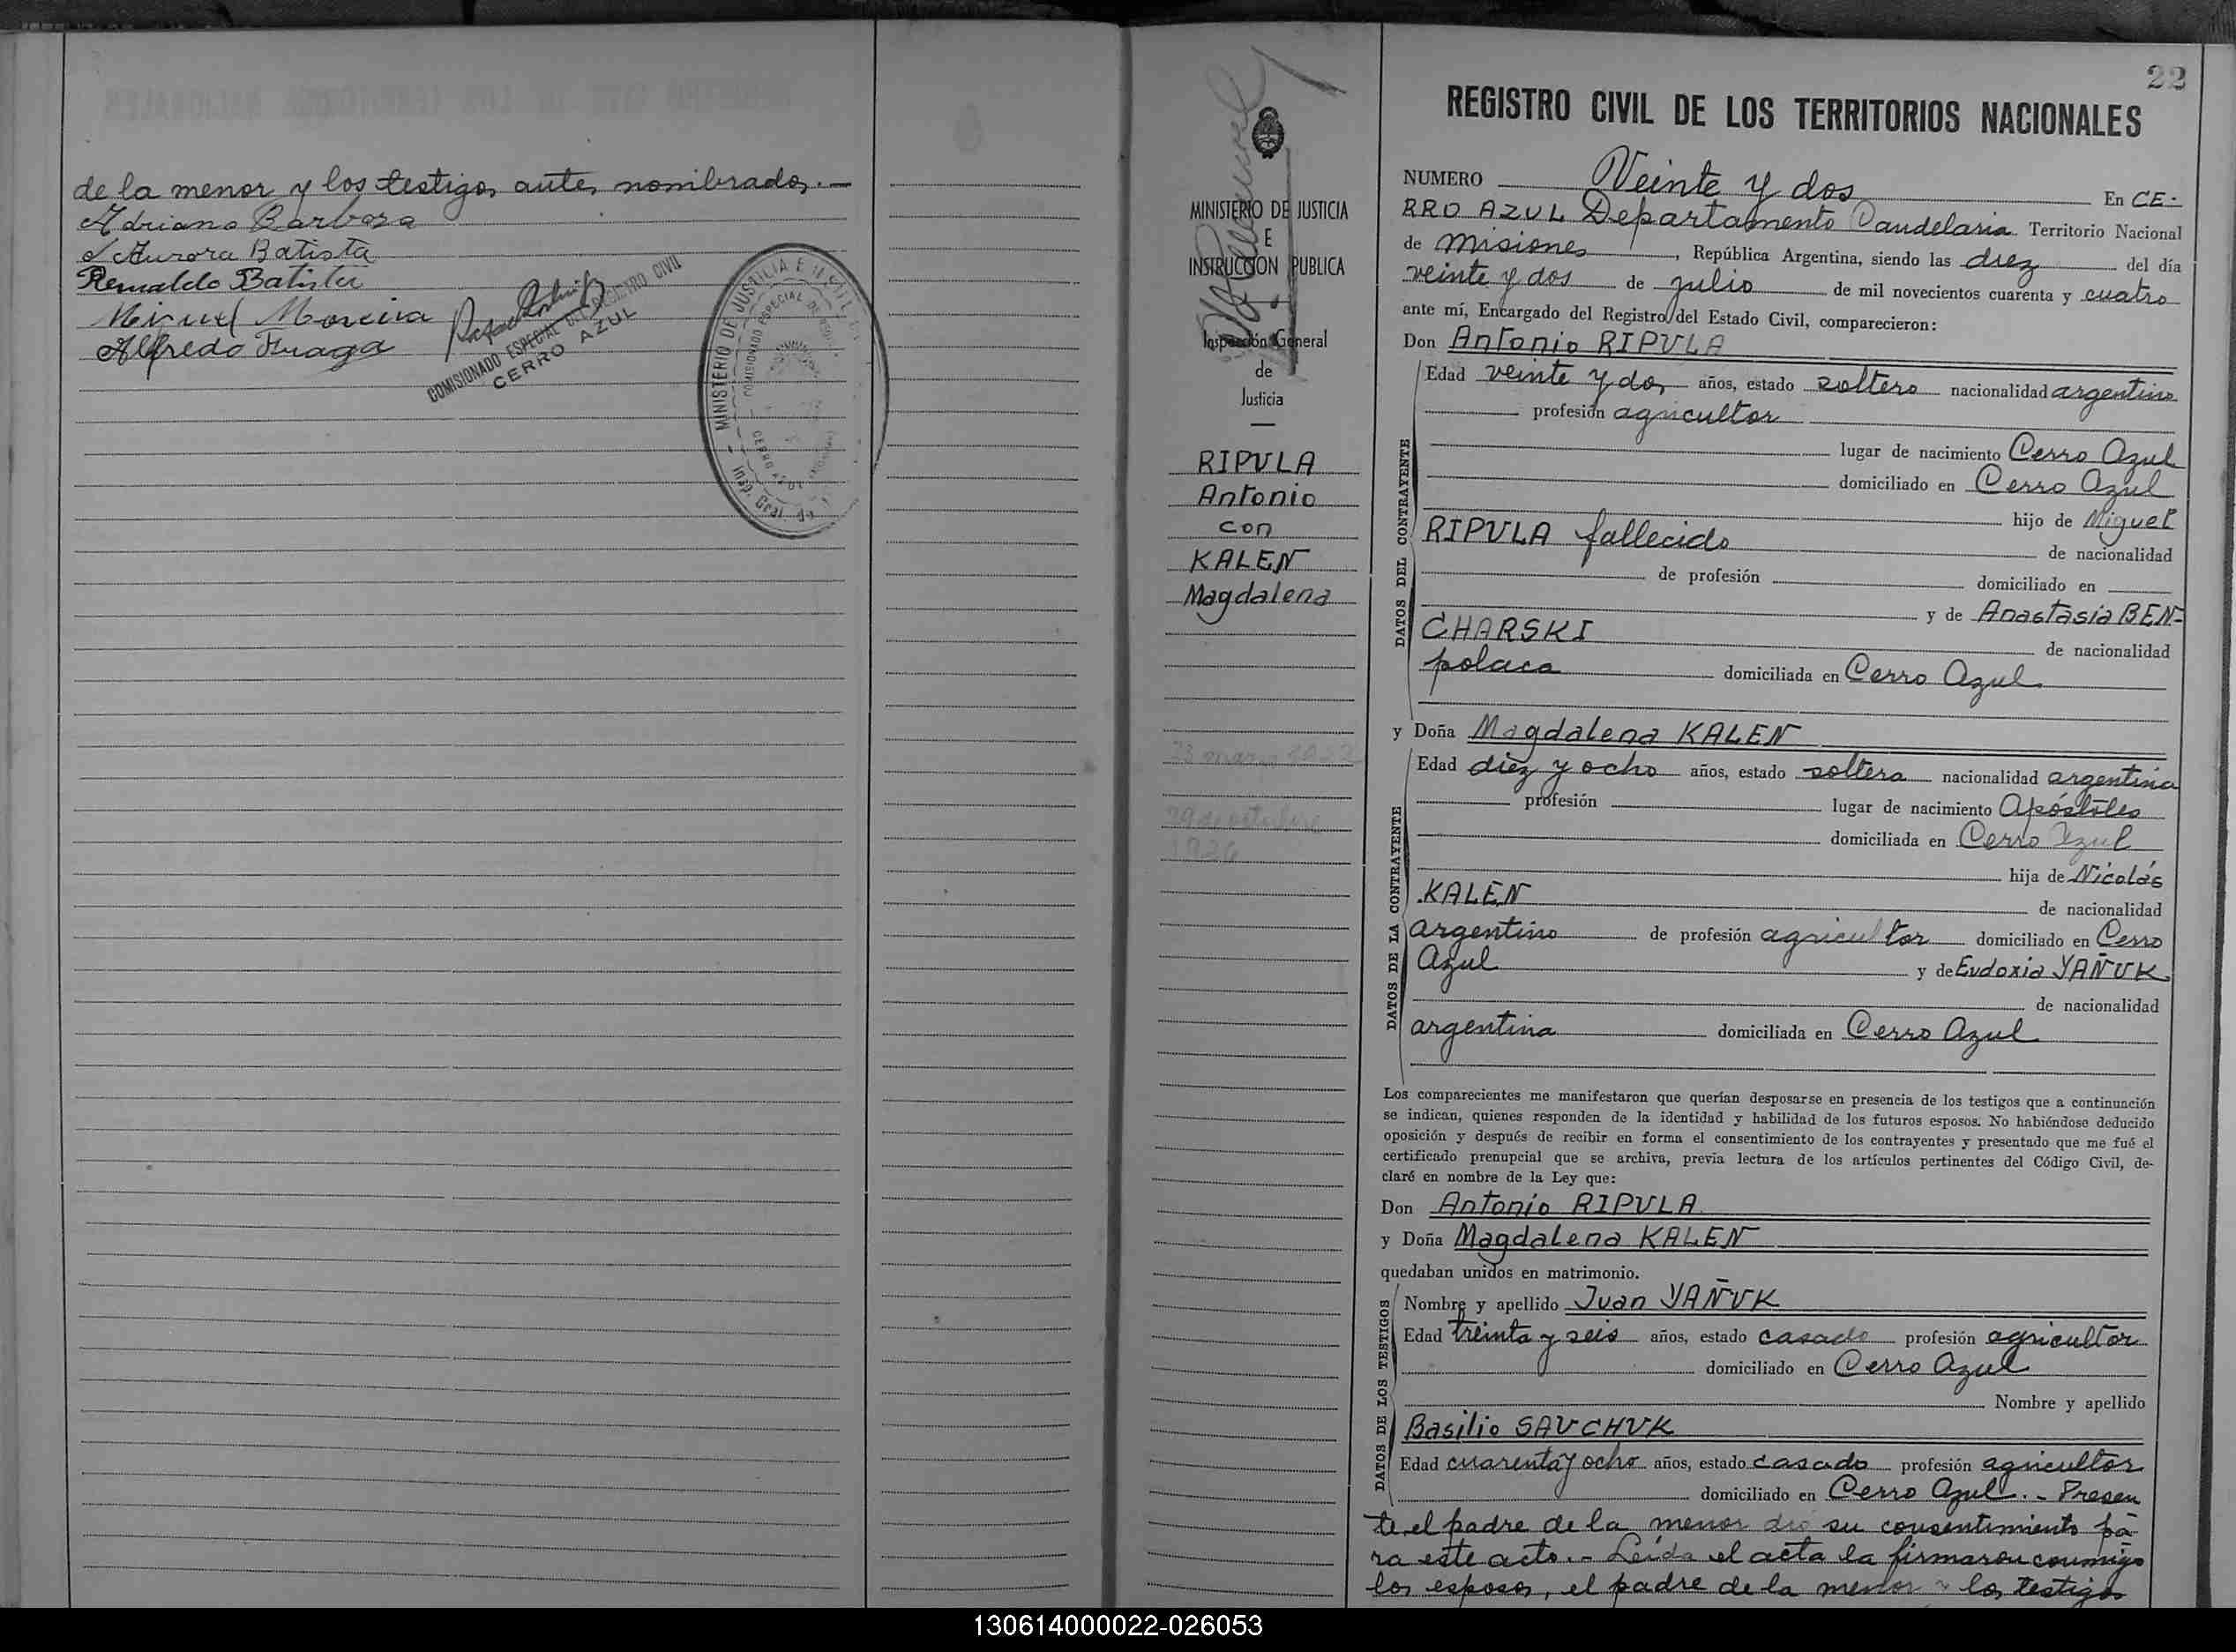 de la menor y los testigos antes nombrados.—
Adriano Barboza
Aurora Batista
Remaldo Batista
Miguel Moreira
Alfredo Fraga
COMISIONADO ESPECIAL DEL REGISTRO CIVIL
CERRO AZUL
MINISTERIO DE JUSTICIA E
COMISIONADO ESPECIAL DE
CERRO AZUL
MINISTERIO DE JUSTICIA
E
INSTRUCCION PUBLICA
Inspección General
de
Justicia
RIPULA
Antonio
con
KALEN
Magdalena
29 de octubre
22
REGISTRO CIVIL DE LOS TERRITORIOS NACIONALES
NUMERO Veinte y dos En CE-
RRO AZUL Departamento Candelaria Territorio Nacional
de Misiones, República Argentina, siendo las diez del día
veinte y dos de julio de mil novecientos cuarenta y cuatro
ante mí, Encargado del Registro del Estado Civil, comparecieron:
Don Antonio RIPULA
Edad veinte y dos años, estado soltero nacionalidad argentino
profesión agricultor
lugar de nacimiento Cerro Azul
domiciliado en Cerro Azul
hijo de Miguel
RIPULA fallecido de nacionalidad
de profesión domiciliado en
y de Anastasia BEN-
CHARSKI de nacionalidad
polaca domiciliada en Cerro Azul
DATOS DEL CONTRAYENTE
y Doña Magdalena KALEN
Edad diez y ocho años, estado soltera nacionalidad argentina
profesión lugar de nacimiento Apóstoles
domiciliada en Cerro Azul
hija de Nicolás
KALEN de nacionalidad
argentino de profesión agricultor domiciliado en Cerro
Azul y de Eudoxia YAÑUK
de nacionalidad
argentina domiciliada en Cerro Azul
DATOS DE LA CONTRAYENTE
Los comparecientes me manifestaron que querían desposarse en presencia de los testigos que a continuación
se indican, quienes responden de la identidad y habilidad de los futuros esposos. No habiéndose deducido
oposición y después de recibir en forma el consentimiento de los contrayentes y presentado que me fué el
certificado prenupcial que se archiva, previa lectura de los artículos pertinentes del Código Civil, de-
claré en nombre de la Ley que:
Don Antonio RIPULA
y Doña Magdalena KALEN
quedaban unidos en matrimonio.
Nombre y apellido Juan YAÑUK
Edad treinta y seis años, estado casado profesión agricultor
domiciliado en Cerro Azul
Nombre y apellido
Basilio SAUCHUK
Edad cuarenta y ocho años, estado casado profesión agricultor
domiciliado en Cerro Azul.- Presen
DATOS DE LOS TESTIGOS
te el padre de la menor dió su consentimiento pa-
ra este acto.- Leída el acta la firmaron conmigo
los esposos, el padre de la menor y los testigos
130614000022-026053